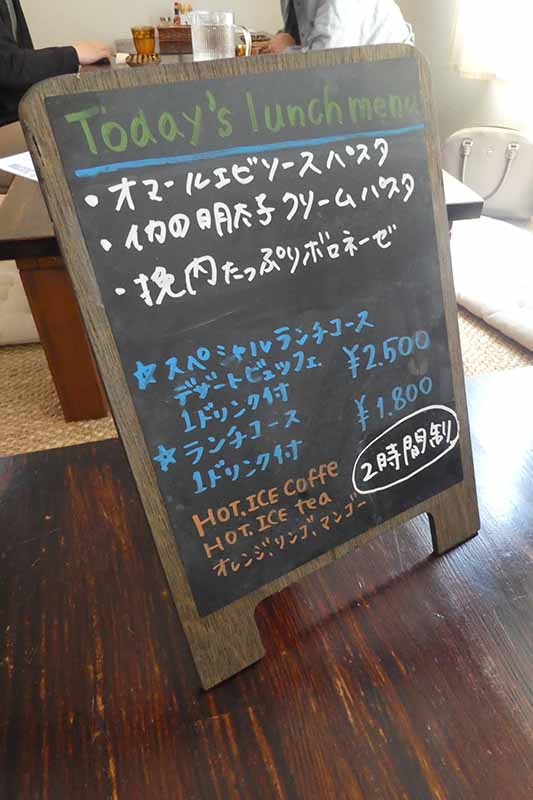 Today's lunch menu
・オマールエビソースパスタ
・イカの明太子クリームパスタ
・挽肉たっぷりボロネーゼ
☆スペシャルランチコース
デザートビュッフェ ¥2.500
1ドリンク付
☆ランチコース ¥1.800
1ドリンク付
2時間制
HOT.ICE Coffe
HOT.ICE tea
オレンジ、リンゴ、マンゴー